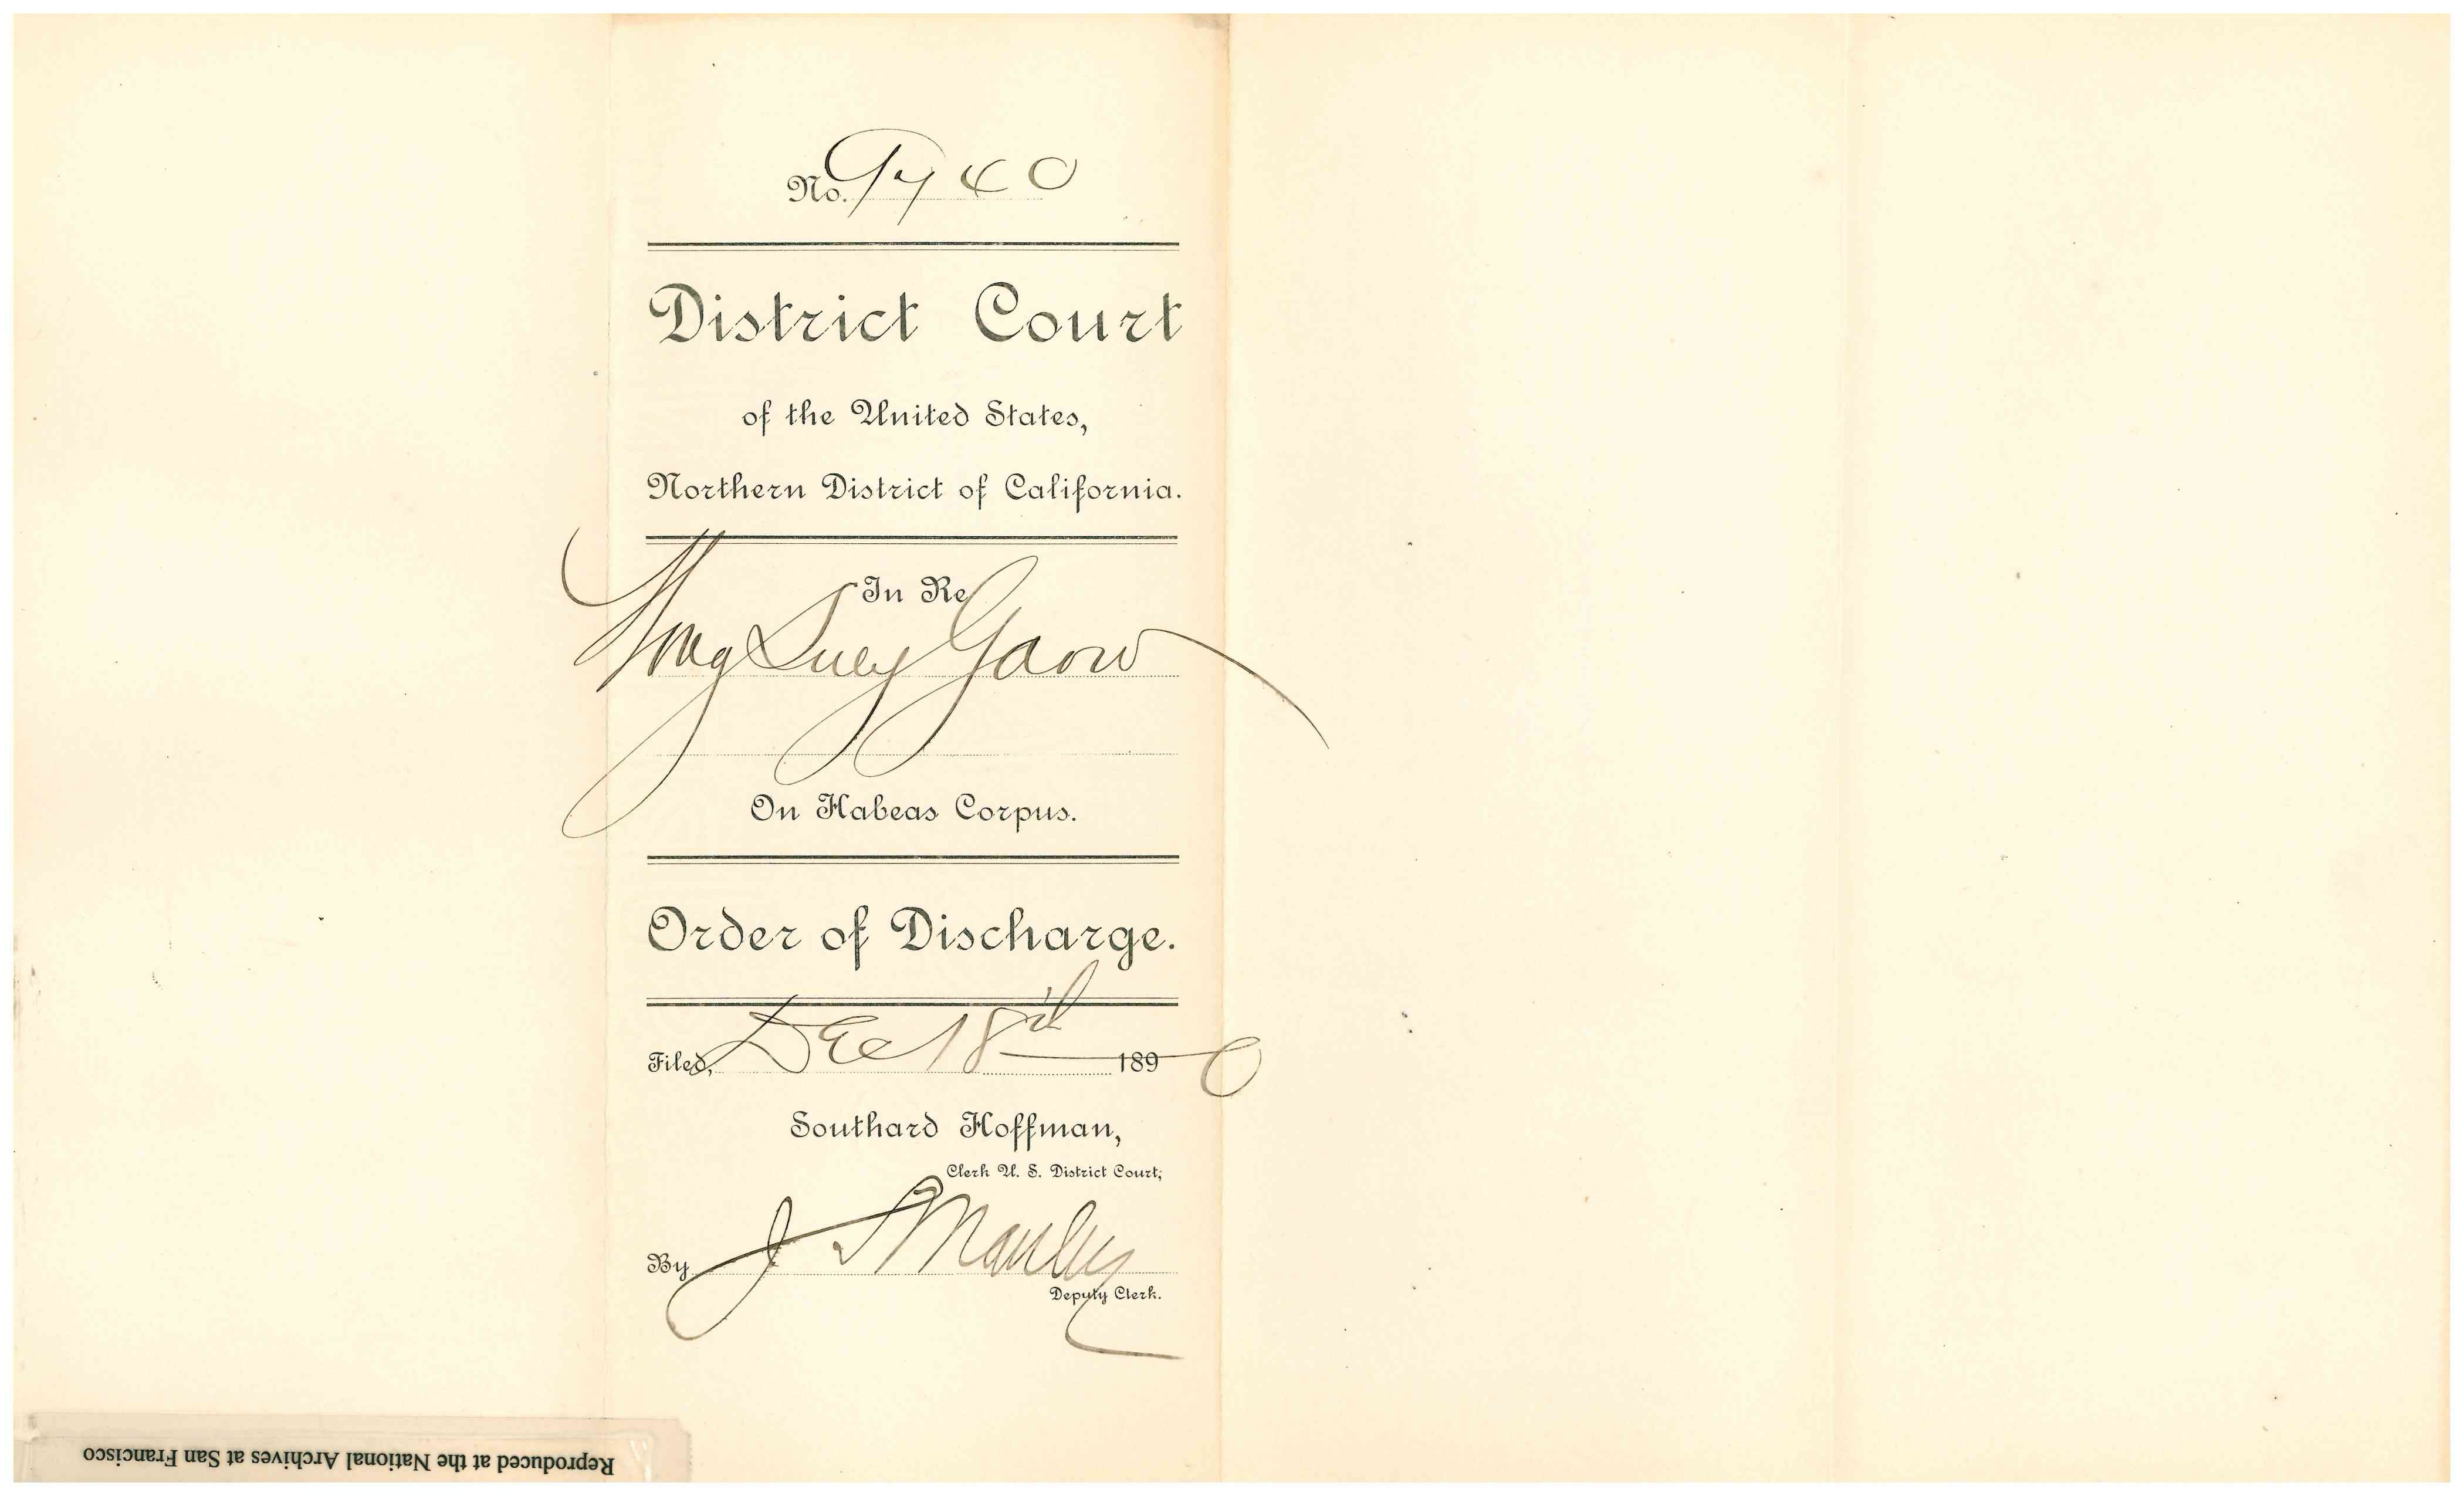 No. 9740
District Court
of the United States,
Northern District of California.
In Re
Wong Suey Gaow
On Habeas Corpus.
Order of Discharge.
Filed, Dec 18th 1890
Southard Hoffman,
Clerk U. S. District Court,
By J S Manley
Deputy Clerk.
Reproduced at the National Archives at San Francisco